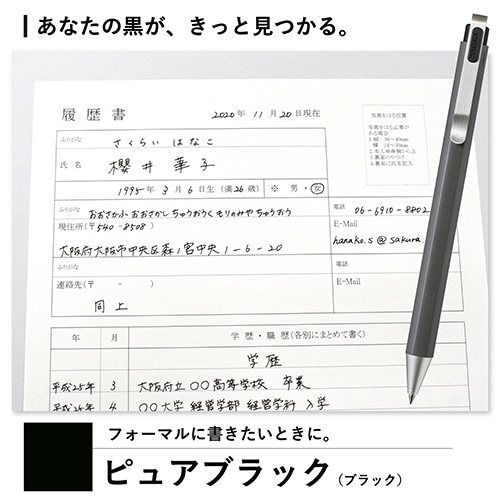 あなたの黒が、きっと見つかる。
履歴書
2020年 11月20日現在
写真をはる位置
写真をはる必要が
ある場合
1.縦 36~40mm
横 24~30mm
2.本人単身胸から上
3.裏面のりづけ
4.裏面に氏名記入
ふりがな さくらい はなこ
氏名 櫻井 華子
1995年 3月6日生(満26歳) ※ 男・女
ふりがな おおさかふ おおさかし ちゅうおうく もりのみや ちゅうおう
電話 06-6910-8802
現住所(〒540-8508)
E-Mail
hanako.s@sakura.
大阪府大阪市中央区森ノ宮中央1-6-20
ふりがな
電話
連絡先(〒 - )
E-Mail
同上
年 月 学歴・職歴(各別にまとめて書く)
学歴
平成25年 3 大阪府立〇〇高等学校 卒業
平成25年 4 〇〇大学 経営学部 経営学科 入学
フォーマルに書きたいときに。
ピュアブラック(ブラック)